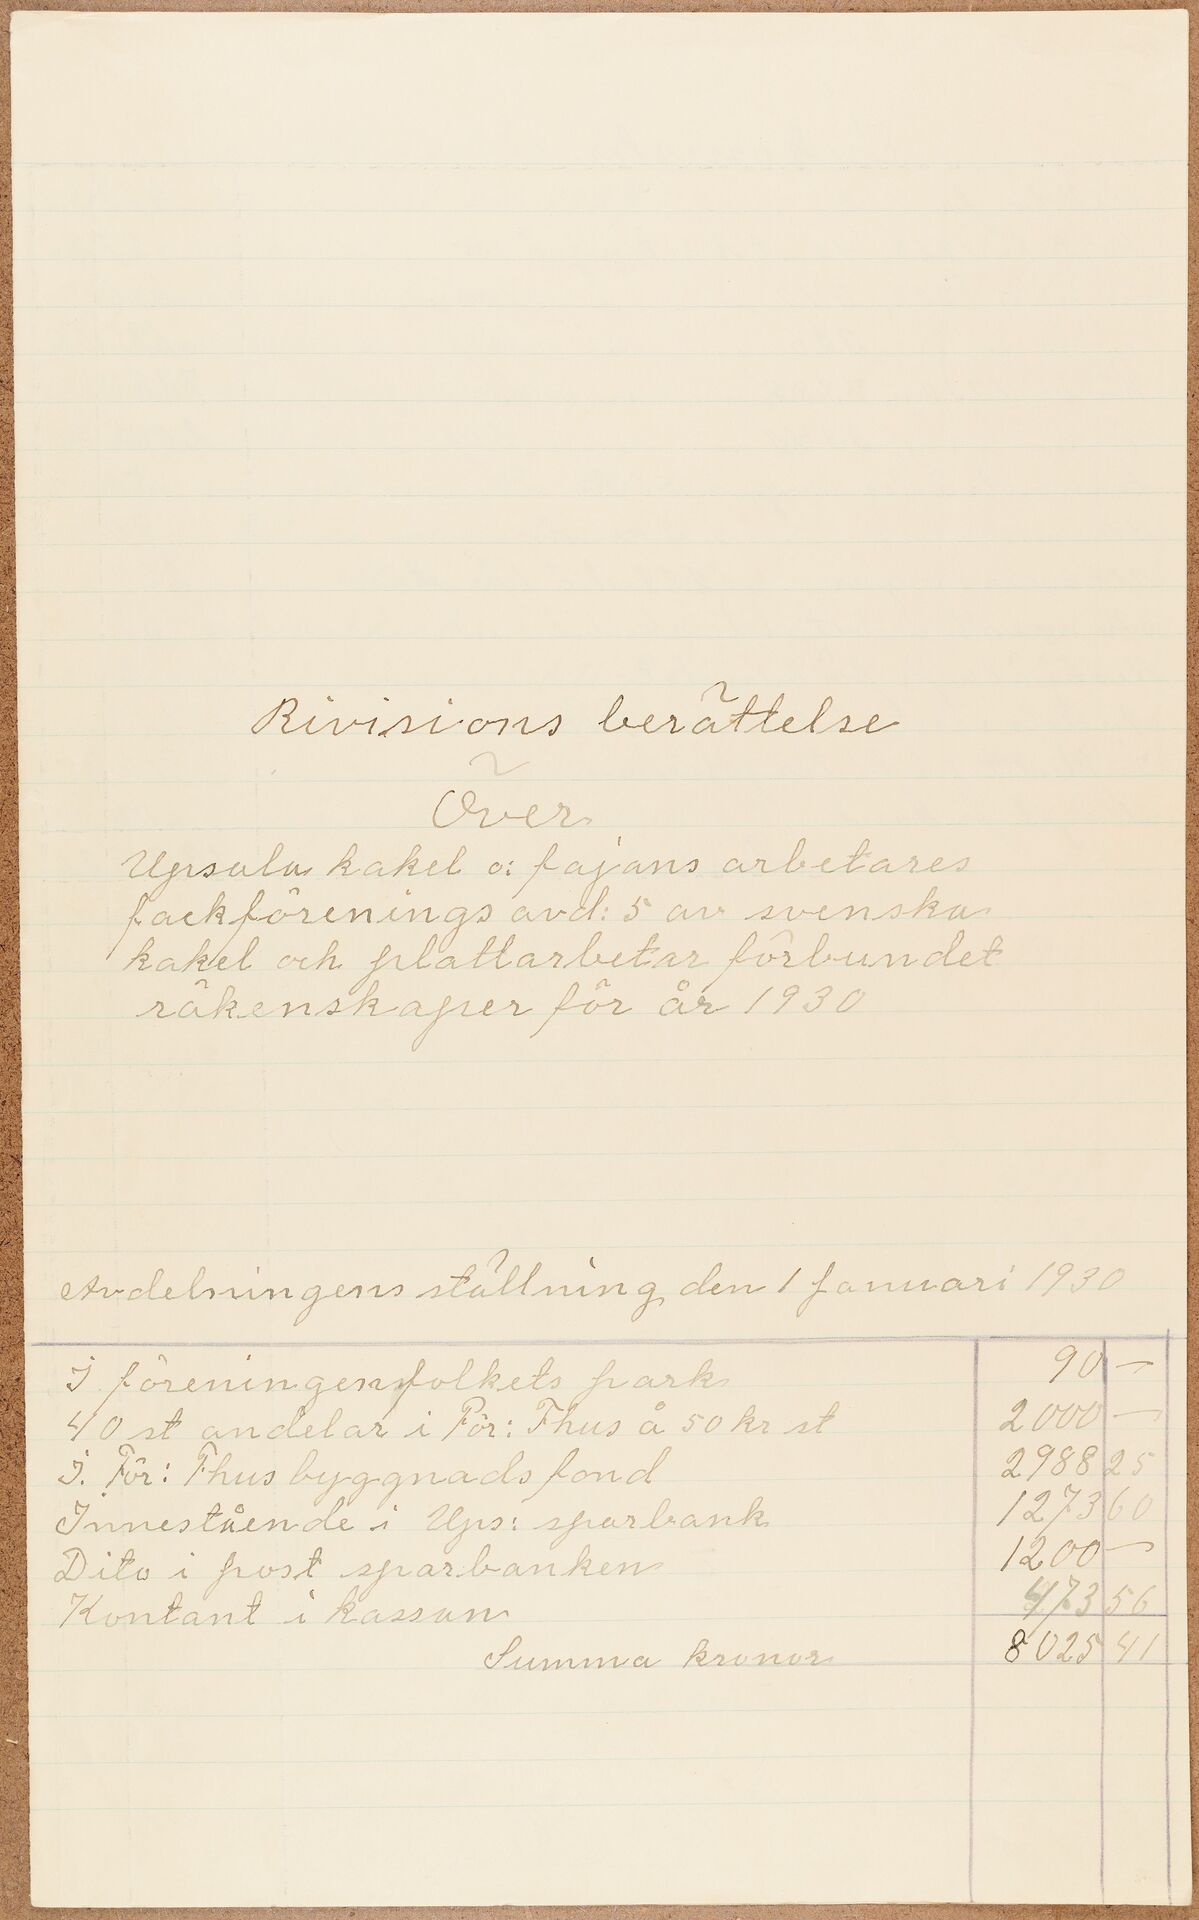 Rivisions berättelse
Över
Upsala kakel o: fajans arbetares
fackförenings avd: 5 av svenska
kakel och plattarbetar förbundet
räkenskaper för år 1930
Avdelningens ställning den 1 Januari 1930
I föreningen folkets park 90 —
40 st andelar i För: Fhus å 50 kr st 2000 —
I. För: Fhus byggnads fond 2988 25
Innestående i Ups: sparbank 1273 60
Dito i post sparbanken 1200 —
Kontant i kassan 473 56
Summa kronor 8025 41